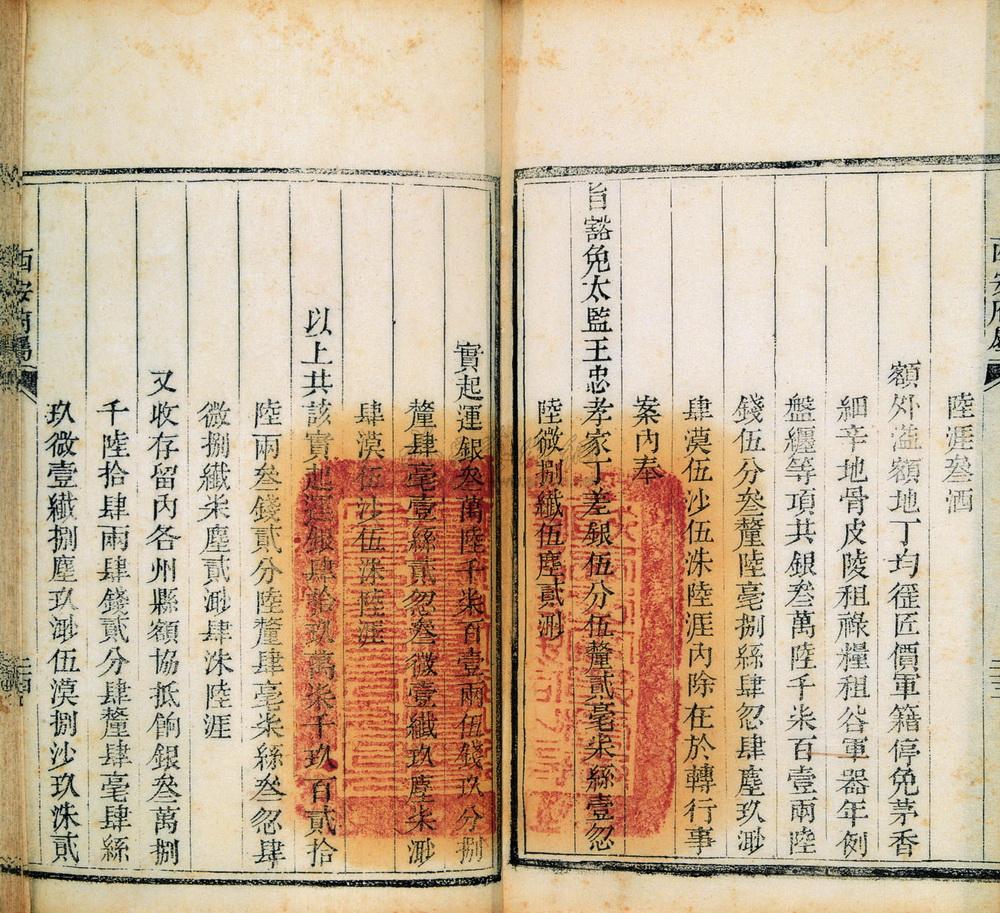 陸涯叁洒
額外溢額地丁均徭匠價軍籍停免茅香
細辛地骨皮陵租祿糧租谷軍器年例
盤纏等項共銀叁萬陸千柒百壹兩陸
錢伍分叁釐陸毫捌絲肆忽肆塵玖渺
肆漠伍沙伍洙陸涯內除在於轉行事
案內奉
旨豁免太監王忠孝家丁差銀伍分伍釐貳毫柒絲壹忽
陸微捌纖伍塵貳渺
實起運銀叁萬陸千柒百壹兩伍錢玖分捌
釐肆毫壹絲貳忽叁微壹纖玖塵柒渺
肆漠伍沙伍洙陸涯
以上共該實起運銀肆拾玖萬柒千玖百貳拾
陸兩叁錢貳分陸釐肆毫柒絲叁忽肆
微捌纖柒塵貳渺肆洙陸涯
又收存留內各州縣額協抵餉銀叁萬捌
千陸拾肆兩肆錢貳分肆釐肆毫肆絲
玖微壹纖捌塵玖渺伍漠捌沙玖洙貳
西安府屬